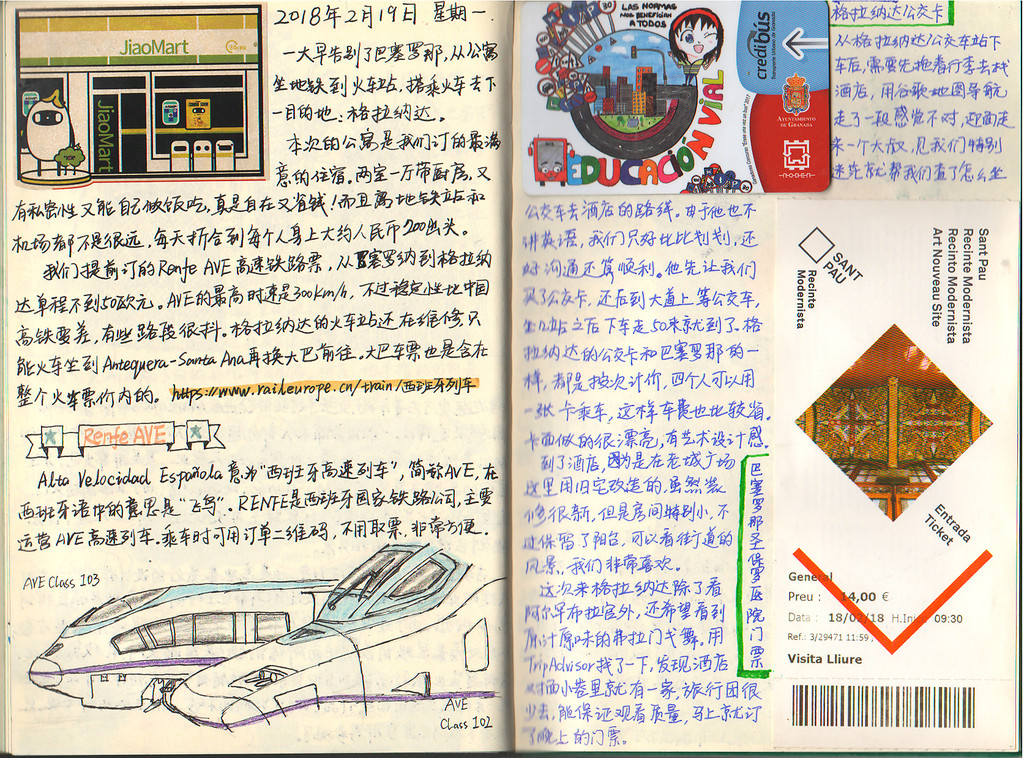 JiaoMart
JiaoMart
2018年2月19日 星期一.
一大早告别了巴塞罗那,从公寓
坐地铁到火车站,搭乘火车去下
一目的地:格拉纳达。
本次的公寓是我们订的最满
意的住宿。两室一厅带厨房,又
有私密性又能自己做饭吃,真是自在又省钱!而且离地铁站和
机场都不是很远,每天折合到每个人身上大约人民币200出头。
我们提前订的Renfe AVE高速铁路票,从巴塞罗纳到格拉纳
达单程不到50欧元。AVE的最高时速是300km/h,不过稳定性比中国
高铁要差,有些路段很抖。格拉纳达的火车站还在维修,只
能火车坐到Antequera-Santa Ana再换大巴前往。大巴车票也是含在
整个火车票价内的。https://www.raileurope.cn/train/西班牙列车
Renfe AVE
Alta Velocidad Española意为"西班牙高速列车",简称AVE,在
西班牙语中的意思是"飞鸟"。RENFE是西班牙国家铁路公司,主要
运营AVE高速列车。乘车时可用订单二维码,不用取票,非常方便.
AVE Class 103
AVE
Class 102
LAS NORMAS
NOS BENEFICIAN
A TODOS
EDUCACIÓN VIAL
credibús
AYUNTAMIENTO
DE GRANADA
格拉纳达公交卡
从格拉纳达公交车站下
车后,需要先拖着行李去找
酒店,用谷歌地图导航
走了一段感觉不对,迎面走
来一个大叔,见我们特别
迷茫就帮我们查了怎么坐
公交车去酒店的路线。由于他也不
讲英语,我们只好比比划划,还
好沟通还算顺利。他先让我们
买了公交卡,还后到大道上等公交车,
坐几站之后下车走50米就到了。格
拉纳达的公交卡和巴塞罗那的一
样,都是按次计价,四个人可以用
一张卡乘车,这样车费也比较省。
卡面做的很漂亮,有艺术设计感.
到了酒店,因为是在老城广场
这里用旧宅改造的,虽然装
修很新,但是房间特别小,不
过保留了阳台,可以看街道的
风景,我们非常喜欢。
这次来格拉纳达除了看
阿尔罕布拉宫外,还希望看到
原汁原味的弗拉门戈舞。用
TripAdvisor找了一下,发现酒店
对面小巷里就有一家,旅行团很
少去,能保证观看质量,马上就订
了晚上的门票。
巴塞罗那圣保罗医院门票
SANT
PAU
Recinte
Modernista
Sant Pau
Recinte Modernista
Recinto Modernista
Art Nouveau Site
Entrada
Ticket
General
Preu : 14,00 €
Data : 18/02/18 H.Ini: 09:30
Ref.: 3/29471 11:59
Visita Lliure